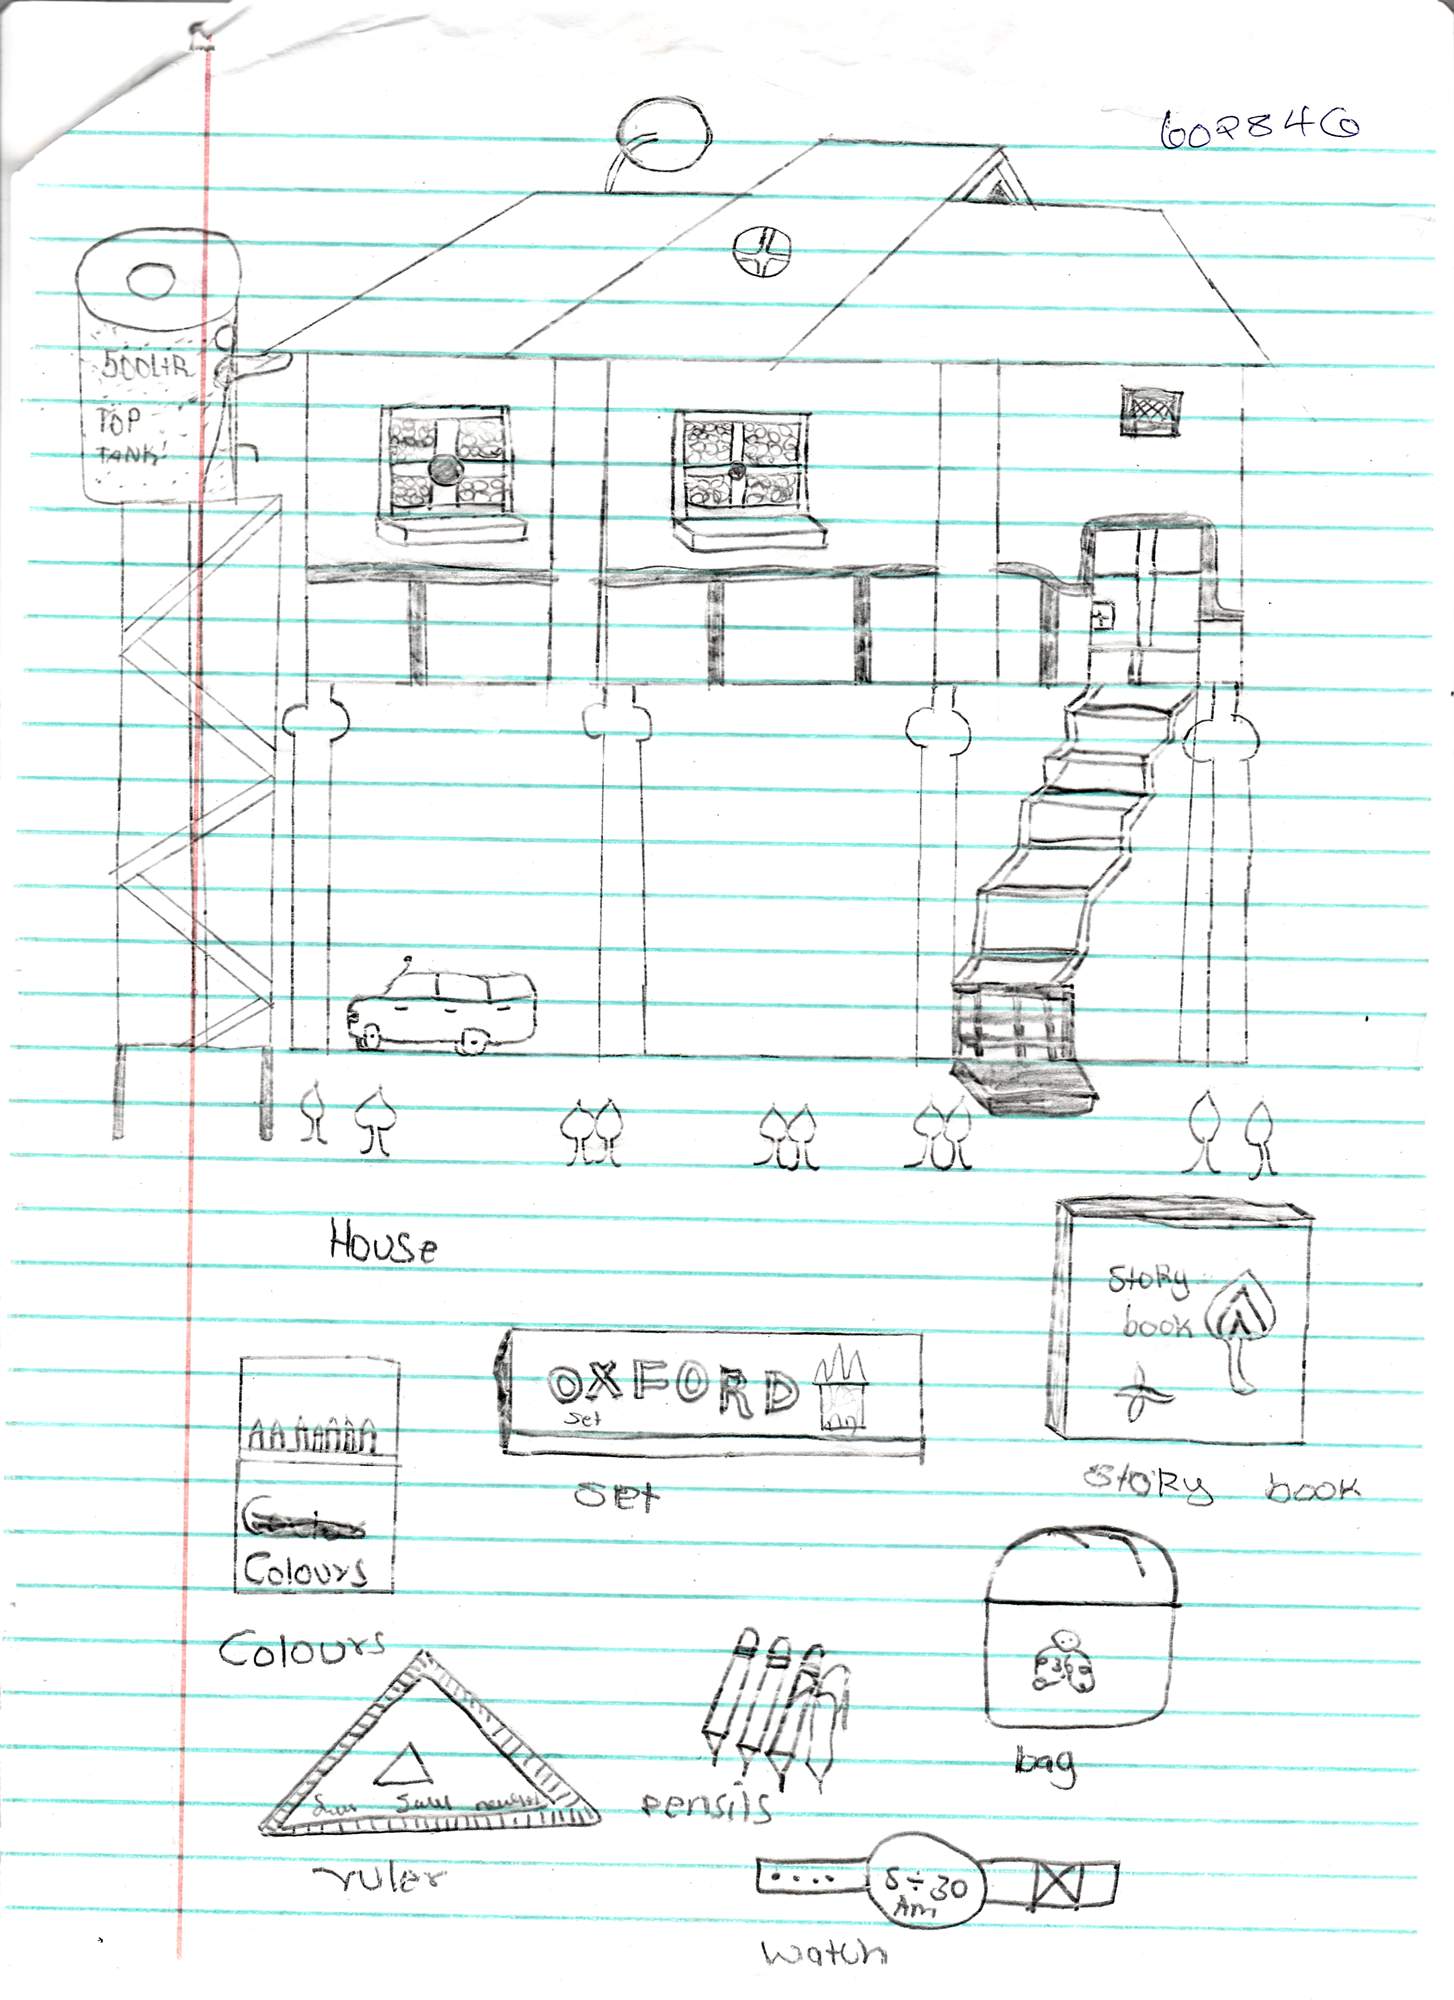 500LtR
TOP
TANK
House
Story
book
OXFORD
Set
Set
Story book
Colours
Colours
bag
pensils
ruler
5÷30
Am
Watch